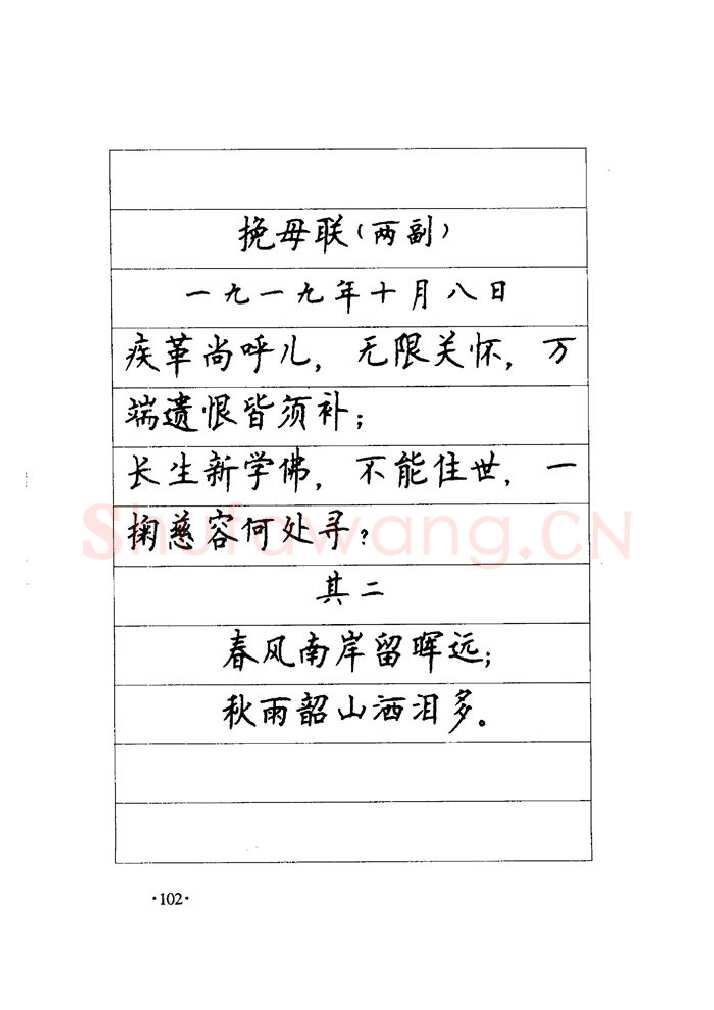 挽母联（两副）
一九一九年十月八日
疾革尚呼儿，无限关怀，万
端遗恨皆须补；
长生新学佛，不能住世，一
掬慈容何处寻？
其二
春风南岸留晖远；
秋雨韶山洒泪多。
Shufawang.CN
·102·